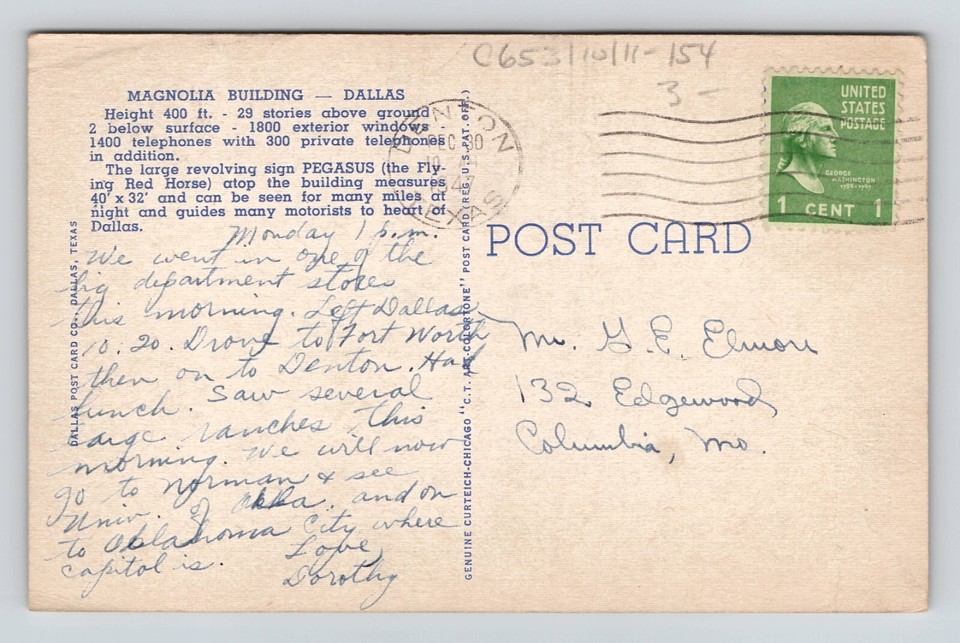 C653/10/11-154
3 -
MAGNOLIA BUILDING — DALLAS
Height 400 ft. - 29 stories above ground -
2 below surface - 1800 exterior windows -
1400 telephones with 300 private telephones
in addition.
The large revolving sign PEGASUS (the Fly-
ing Red Horse) atop the building measures
40' x 32' and can be seen for many miles at
night and guides many motorists to heart of
Dallas.
Monday 1 p.m.
We went in one of the
big department stores
this morning. Left Dallas
10.20. Drove to Fort Worth
then on to Denton. Had
lunch. Saw several
large ranches this
morning. We will now
go to Norman & see
Univ. of Okla. and on
to Oklahoma City where
capitol is.
Love,
Dorothy
DALLAS POST CARD CO., DALLAS, TEXAS
GENUINE CURTEICH-CHICAGO "C.T. ART-COLORTONE" POST CARD (REG. U.S. PAT. OFF.)
DENTON
DEC 30
TEXAS
UNITED
STATES
POSTAGE
GEORGE
WASHINGTON
1 CENT 1
POST CARD
Mr. G. E. Elmore
132 Edgewood
Columbia, Mo.